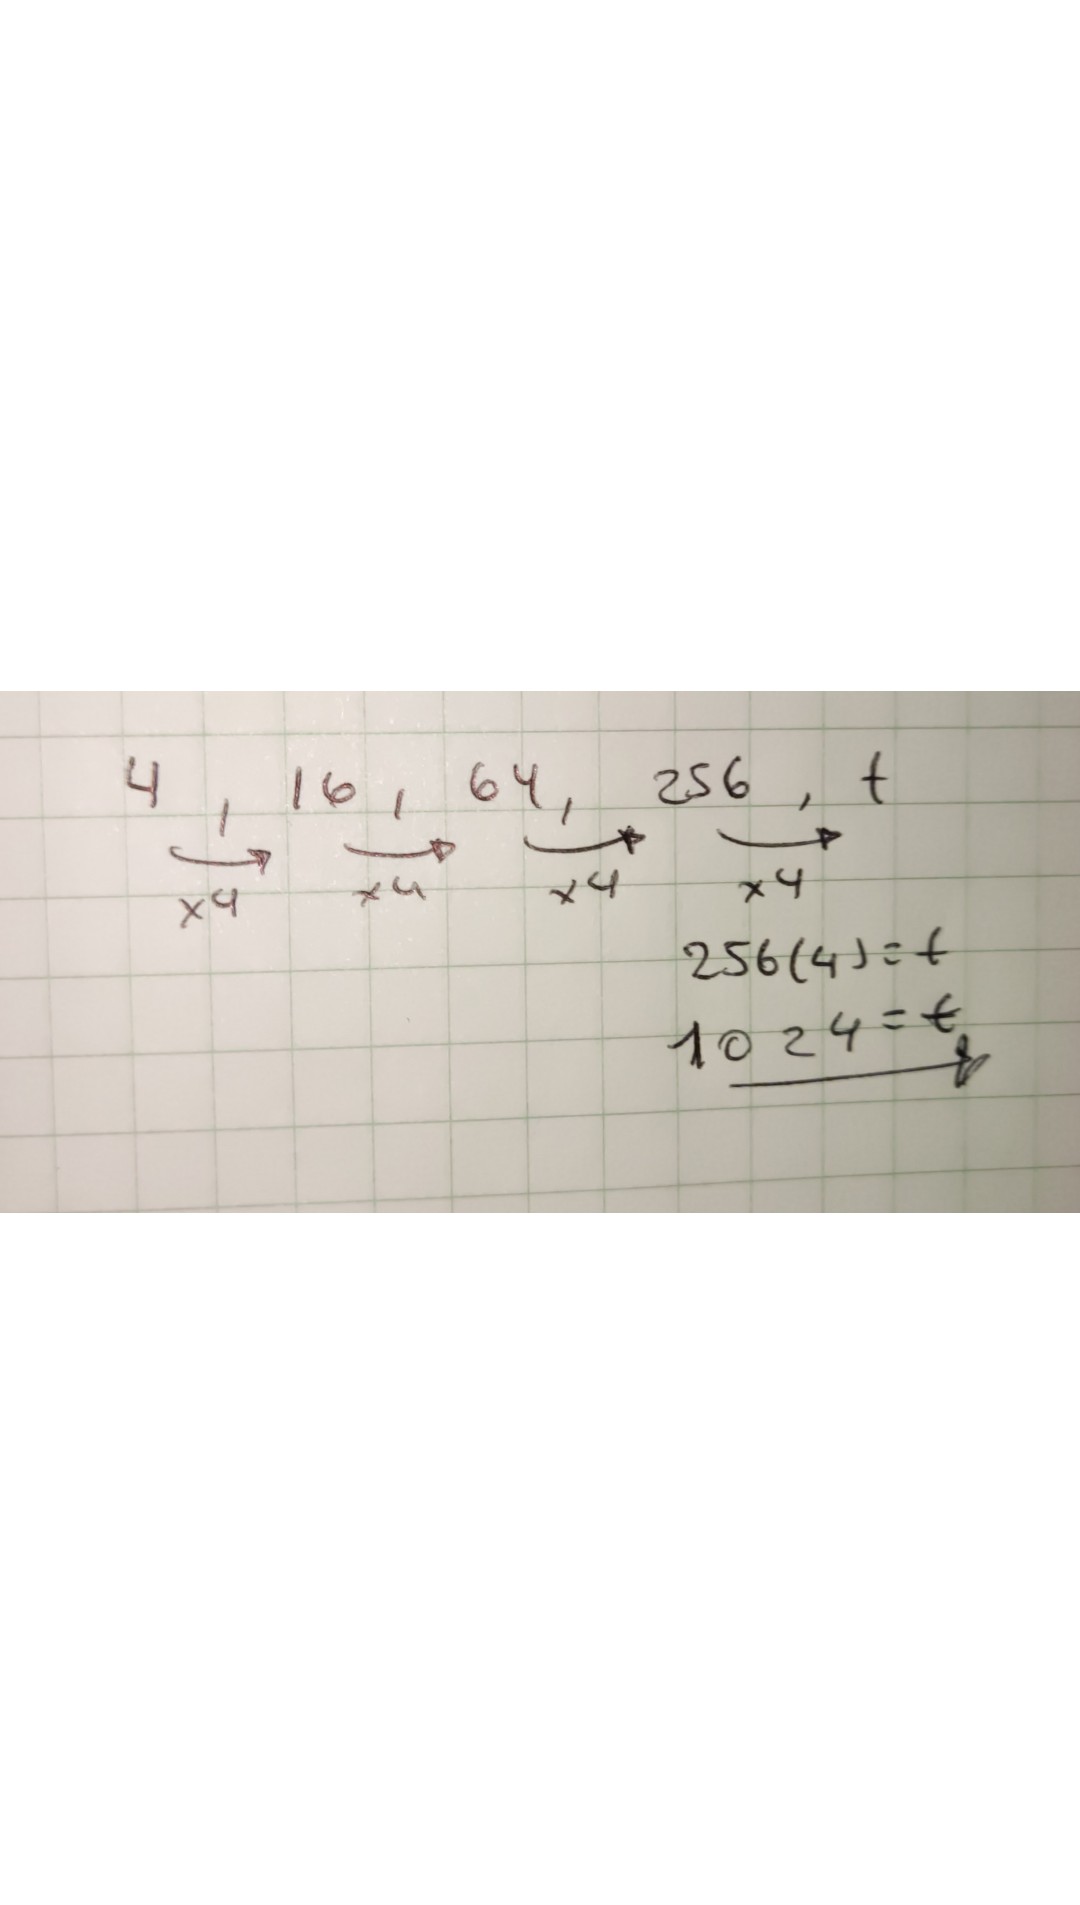 4 , 16 , 64, 256 , t
x4 x4 x4 x4
256(4)=t
1024=t